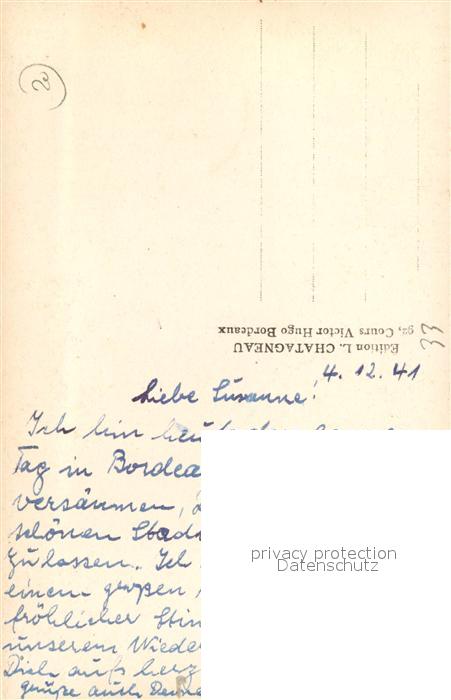 2e
Edition L. CHATAGNEAU
92, Cours Victor Hugo Bordeaux
33
4. 12. 41
Liebe Susanne!
Ich bin
Tag in Bordea
versäumen,
schönen Stad
zu lassen. Ich
einen großen
fröhlicher Stim
unserem Wieder
Dich aufs herz
grüße auch Deine
privacy protection
Datenschutz